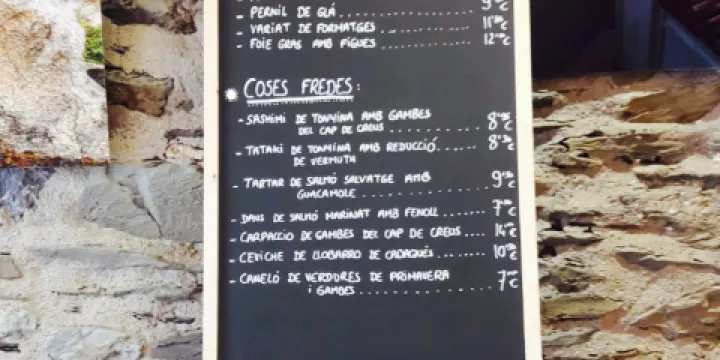 - PERNIL DE GLÀ .......... 9 €
- VARIAT DE FORMATGES ....... 11 €
- FOIE GRAS AMB FIGUES ....... 12 €
COSES FREDES:
- SASHIMI DE TONYINA AMB GAMBES
DEL CAP DE CREUS .......... 8 €
- TATAKI DE TONYINA AMB REDUCCIÓ ...... 8 €
DE VERMUTH
- TARTAR DE SALMÓ SALVATGE AMB
GUACAMOLE .......... 9 €
- DAUS DE SALMÓ MARINAT AMB FENOLL ....... 7 €
- CARPACCIO DE GAMBES DEL CAP DE CREUS .... 14 €
- CEVICHE DE LLOBARRO DE CADAQUÉS ..... 10 €
- CANELÓ DE VERDURES DE PRIMAVERA
I GAMBES .......... 7 €